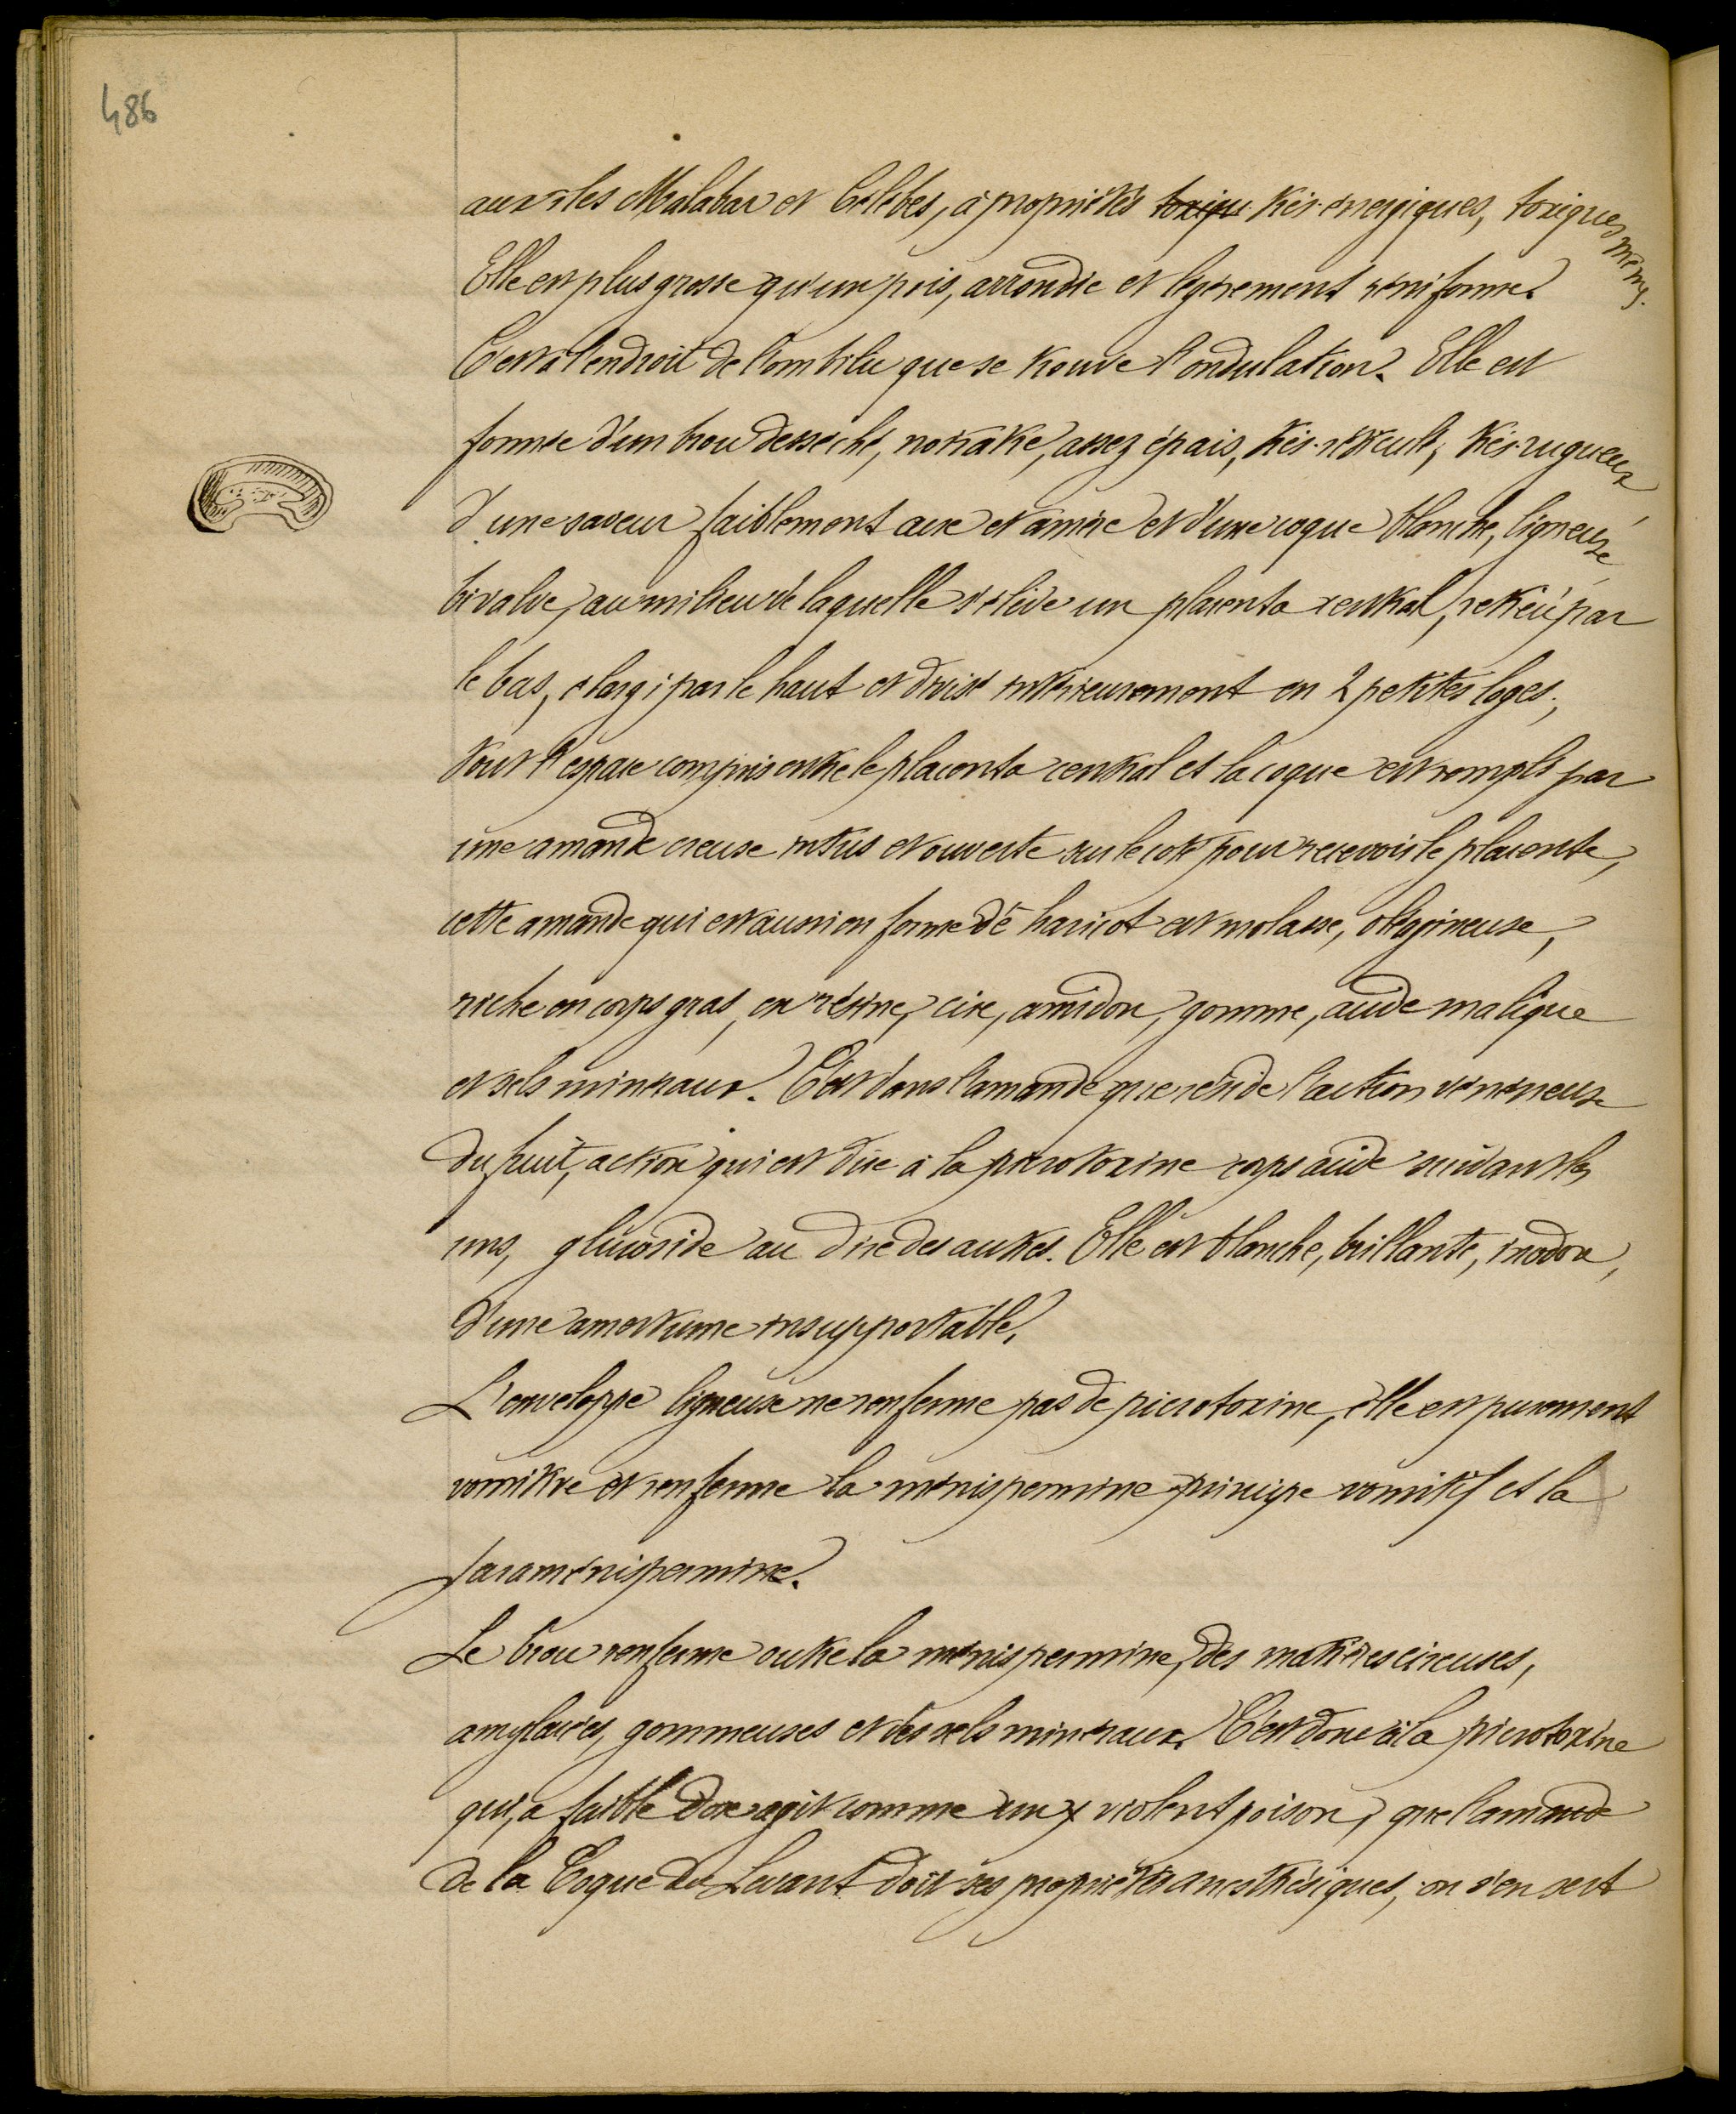 486
aux iles Malabar et Célèbes, à propriétés toxiqu très-energiques, toxiques même.
Elle est plus grosse qu'un pois, arrondie et légèrement réniforme.
C'est à l'endroit de l'ombilic que se trouve l'ondulation. Elle est
formée d'un brou desséché, noirâtre, assez épais, très-réticulé, très-rugueux,
d'une saveur faiblement acre et amère et d'une coque blanche, ligneuse,
bivalve, au milieu de laquelle s'élève un placenta central, rétréci par
le bas, élargi par le haut et divisé intérieurement en 2 petites loges;
tout l'espace compris entre le placenta central et la coque est rempli par
une amande creuse intus et ouverte sur le coté pour recevoir le placenta,
cette amande qui est aussi en forme de haricot est molasse, oléagineuse,
riche en corps gras, en résine, cire, amidon, gomme, acide malique
et sels minéraux. C'est dans l'amande que réside l'action vénéneuse
du fruit, action qui est due à la picrotoxine corps acide suivant les
uns, glucoside au dire des autres. Elle est blanche, brillante, inodore,
d'une amertume insupportable.
L'enveloppe ligneuse ne renferme pas de picrotoxine, elle est purement
vomitive et renferme la ménispermine principe vomitif et la
paraménispermine.
Le brou renferme outre la ménispermine, des matières cireuses,
amylacées, gommeuses et des sels minéraux. C'est donc à la picrotoxine
qui, a faible dose agit comme un violent poison, que l'amande
de la Coque du Levant doit ses propriétés anesthésiques, on s'en sert